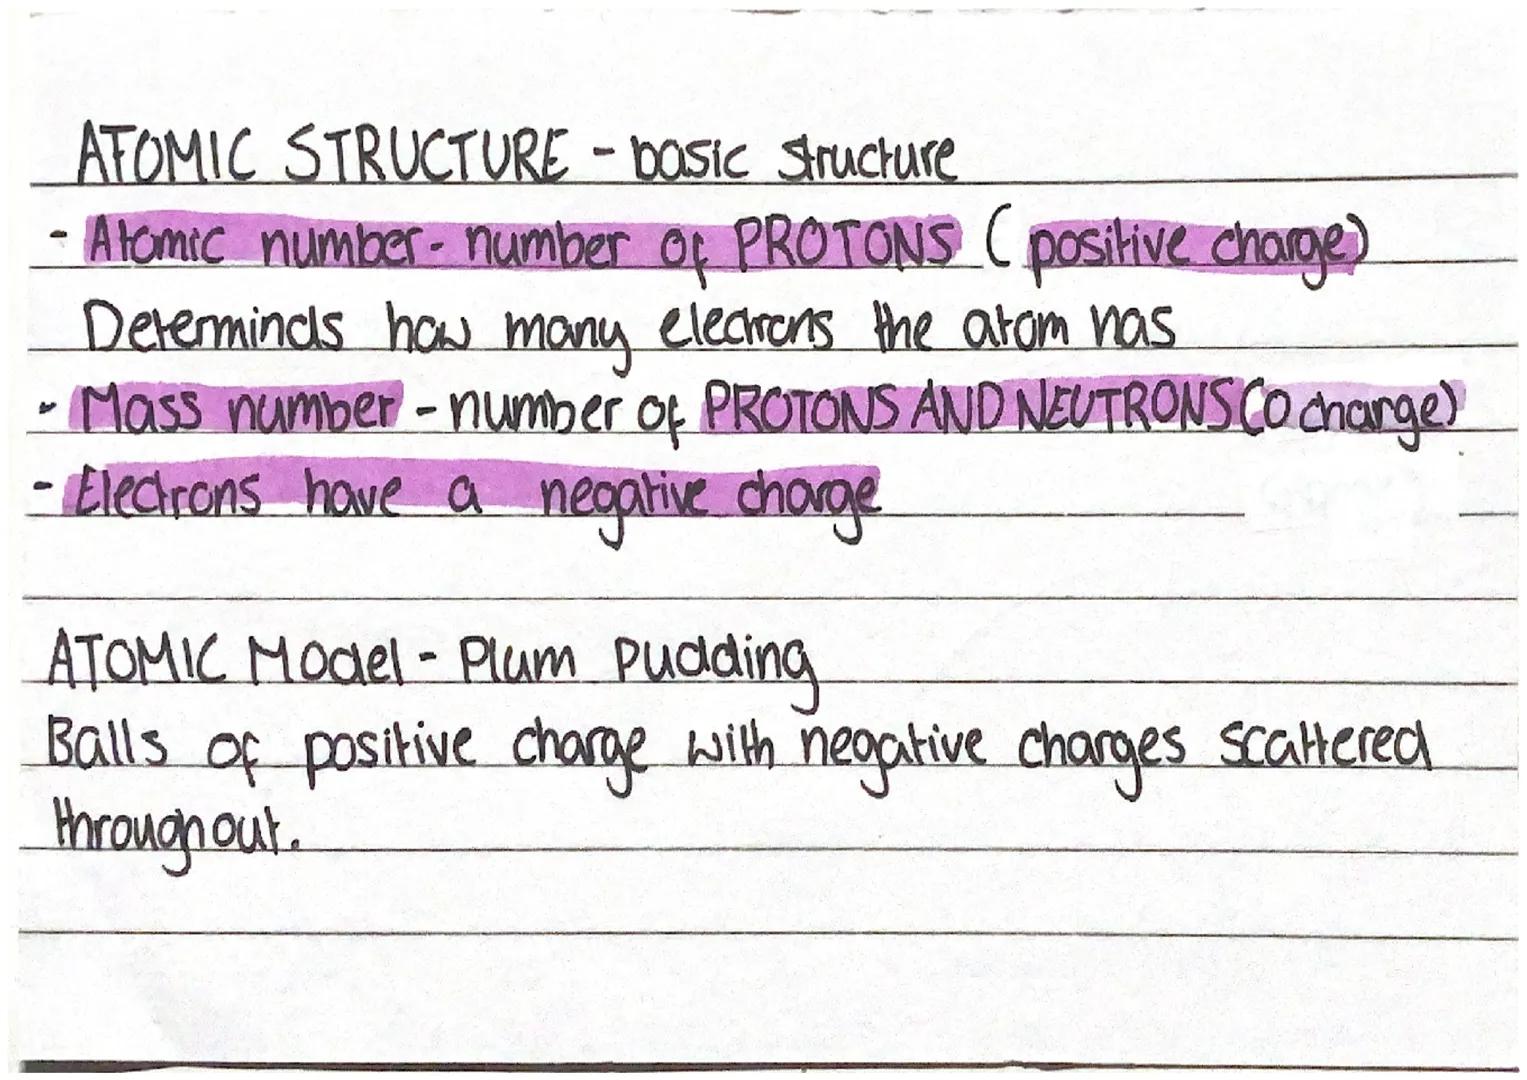 ATOMIC STRUCTURE - basic structure
- Atomic number - number of PROTONS (positive charge)
Determinds how many electrons the atom has
- Mass number - number of PROTONS AND NEUTRONS (0 charge)
- Electrons have a negative charge
ATOMIC Model - Plum pudding
Balls of positive charge with negative charges scattered
throughout.